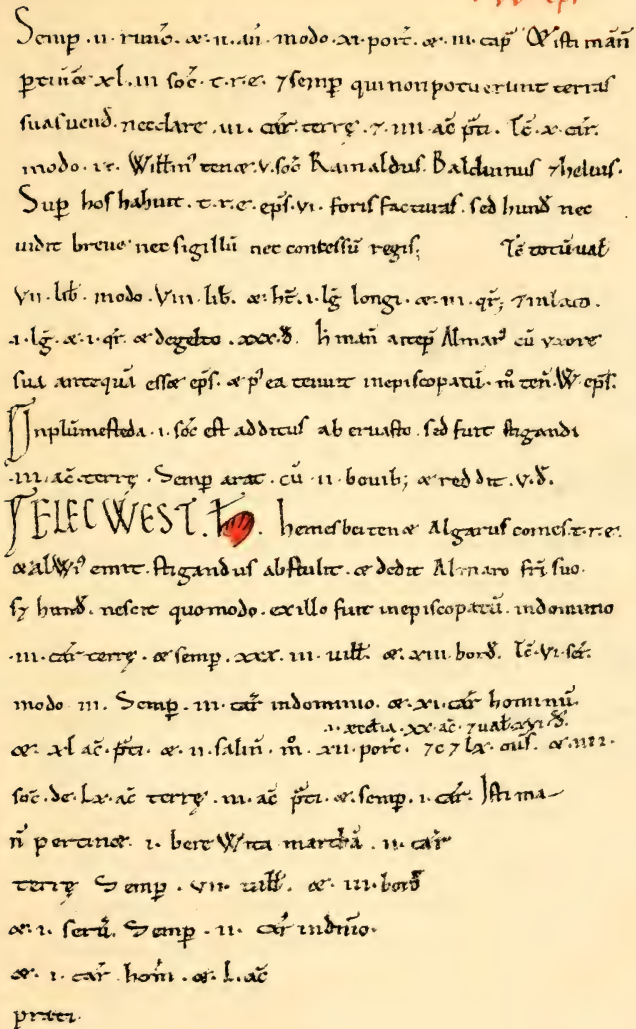 Semp̄. ii. runc̄. & .ii. an̄. modo. xi. porc̄. & .iii. cap̄. & isti man̄
ptin& xl.iii soc̄. t.r.e. 7 semp̄ qui non potuerunt terras
suas uend̄. nec dare .vi. car̄. terrę. 7. iiii. ac̄ p̄ti. Tc̄. x. car̄.
modo. ix. Willm̄' ten&. v. soc̄ Rainaldus. Balduinus 7 helius.
Sup̄ hos habuit. t.r.e. ep̄s. vi. forisfacturas. sed hund̄ nec
uidit breue nec sigillū nec concessū regis; Tc̄ totū ual̄
Vii. lib̄. modo. Viii. lib̄. & ht̄. i. lḡ longi. & .iii. qr̄; 7 in lato.
.i. lḡ. & .i. qr̄. & de gelto. xxx. d̄. h̄ man̄ accep̄ Almar' cū uxore
sua antequā ess& ep̄s. & p' ea tenuit in episcopatū. m̄ ten̄. W. ep̄s.
Inplūmesteda. i. soc̄ est additus ab eruasto. sed fuit stigandi
.iii. ac̄. terrę. Semp̄ arat. cū. ii. bouib; & reddit. v. d̄.
TELECWEST. h̄. hemesbei ten& Algarus comes. t.r.e.
& alwi' emit. stigandus abstulit. & dedit Almaro fri suo.
sȝ hund̄. nescit quomodo. ex illo fuit in episcopatū. in dominio
.iii. car̄ terrę. & semp̄. xxx. iii. uill̄. & .xiii. bord̄. Tc̄. vi. ser̄.
modo iii. Semp̄. iii. car̄ in dominio. & .xi. car̄ hominū.
.i. ecclīa. xx. ac̄. 7 ual̄. xvi. d̄.
& .xl ac̄. p̄ti. & .ii. salin̄. m̄. xii. porc̄. 7 c 7 lx. ous̄. & .iiii.
soc̄. de. lx. ac̄ terrę. iii. ac̄ p̄ti. & .semp̄. i. car̄. Isti ma-
n̄ pertin&. i. berewita martha̅. ii. car̄
terrę Semp̄. vii. uill̄. & .iii. bord̄
& .i. seru̅. Semp̄. ii. car̄ in dn̄io.
& .i. car̄ hom̄. & .l. ac̄
prati.